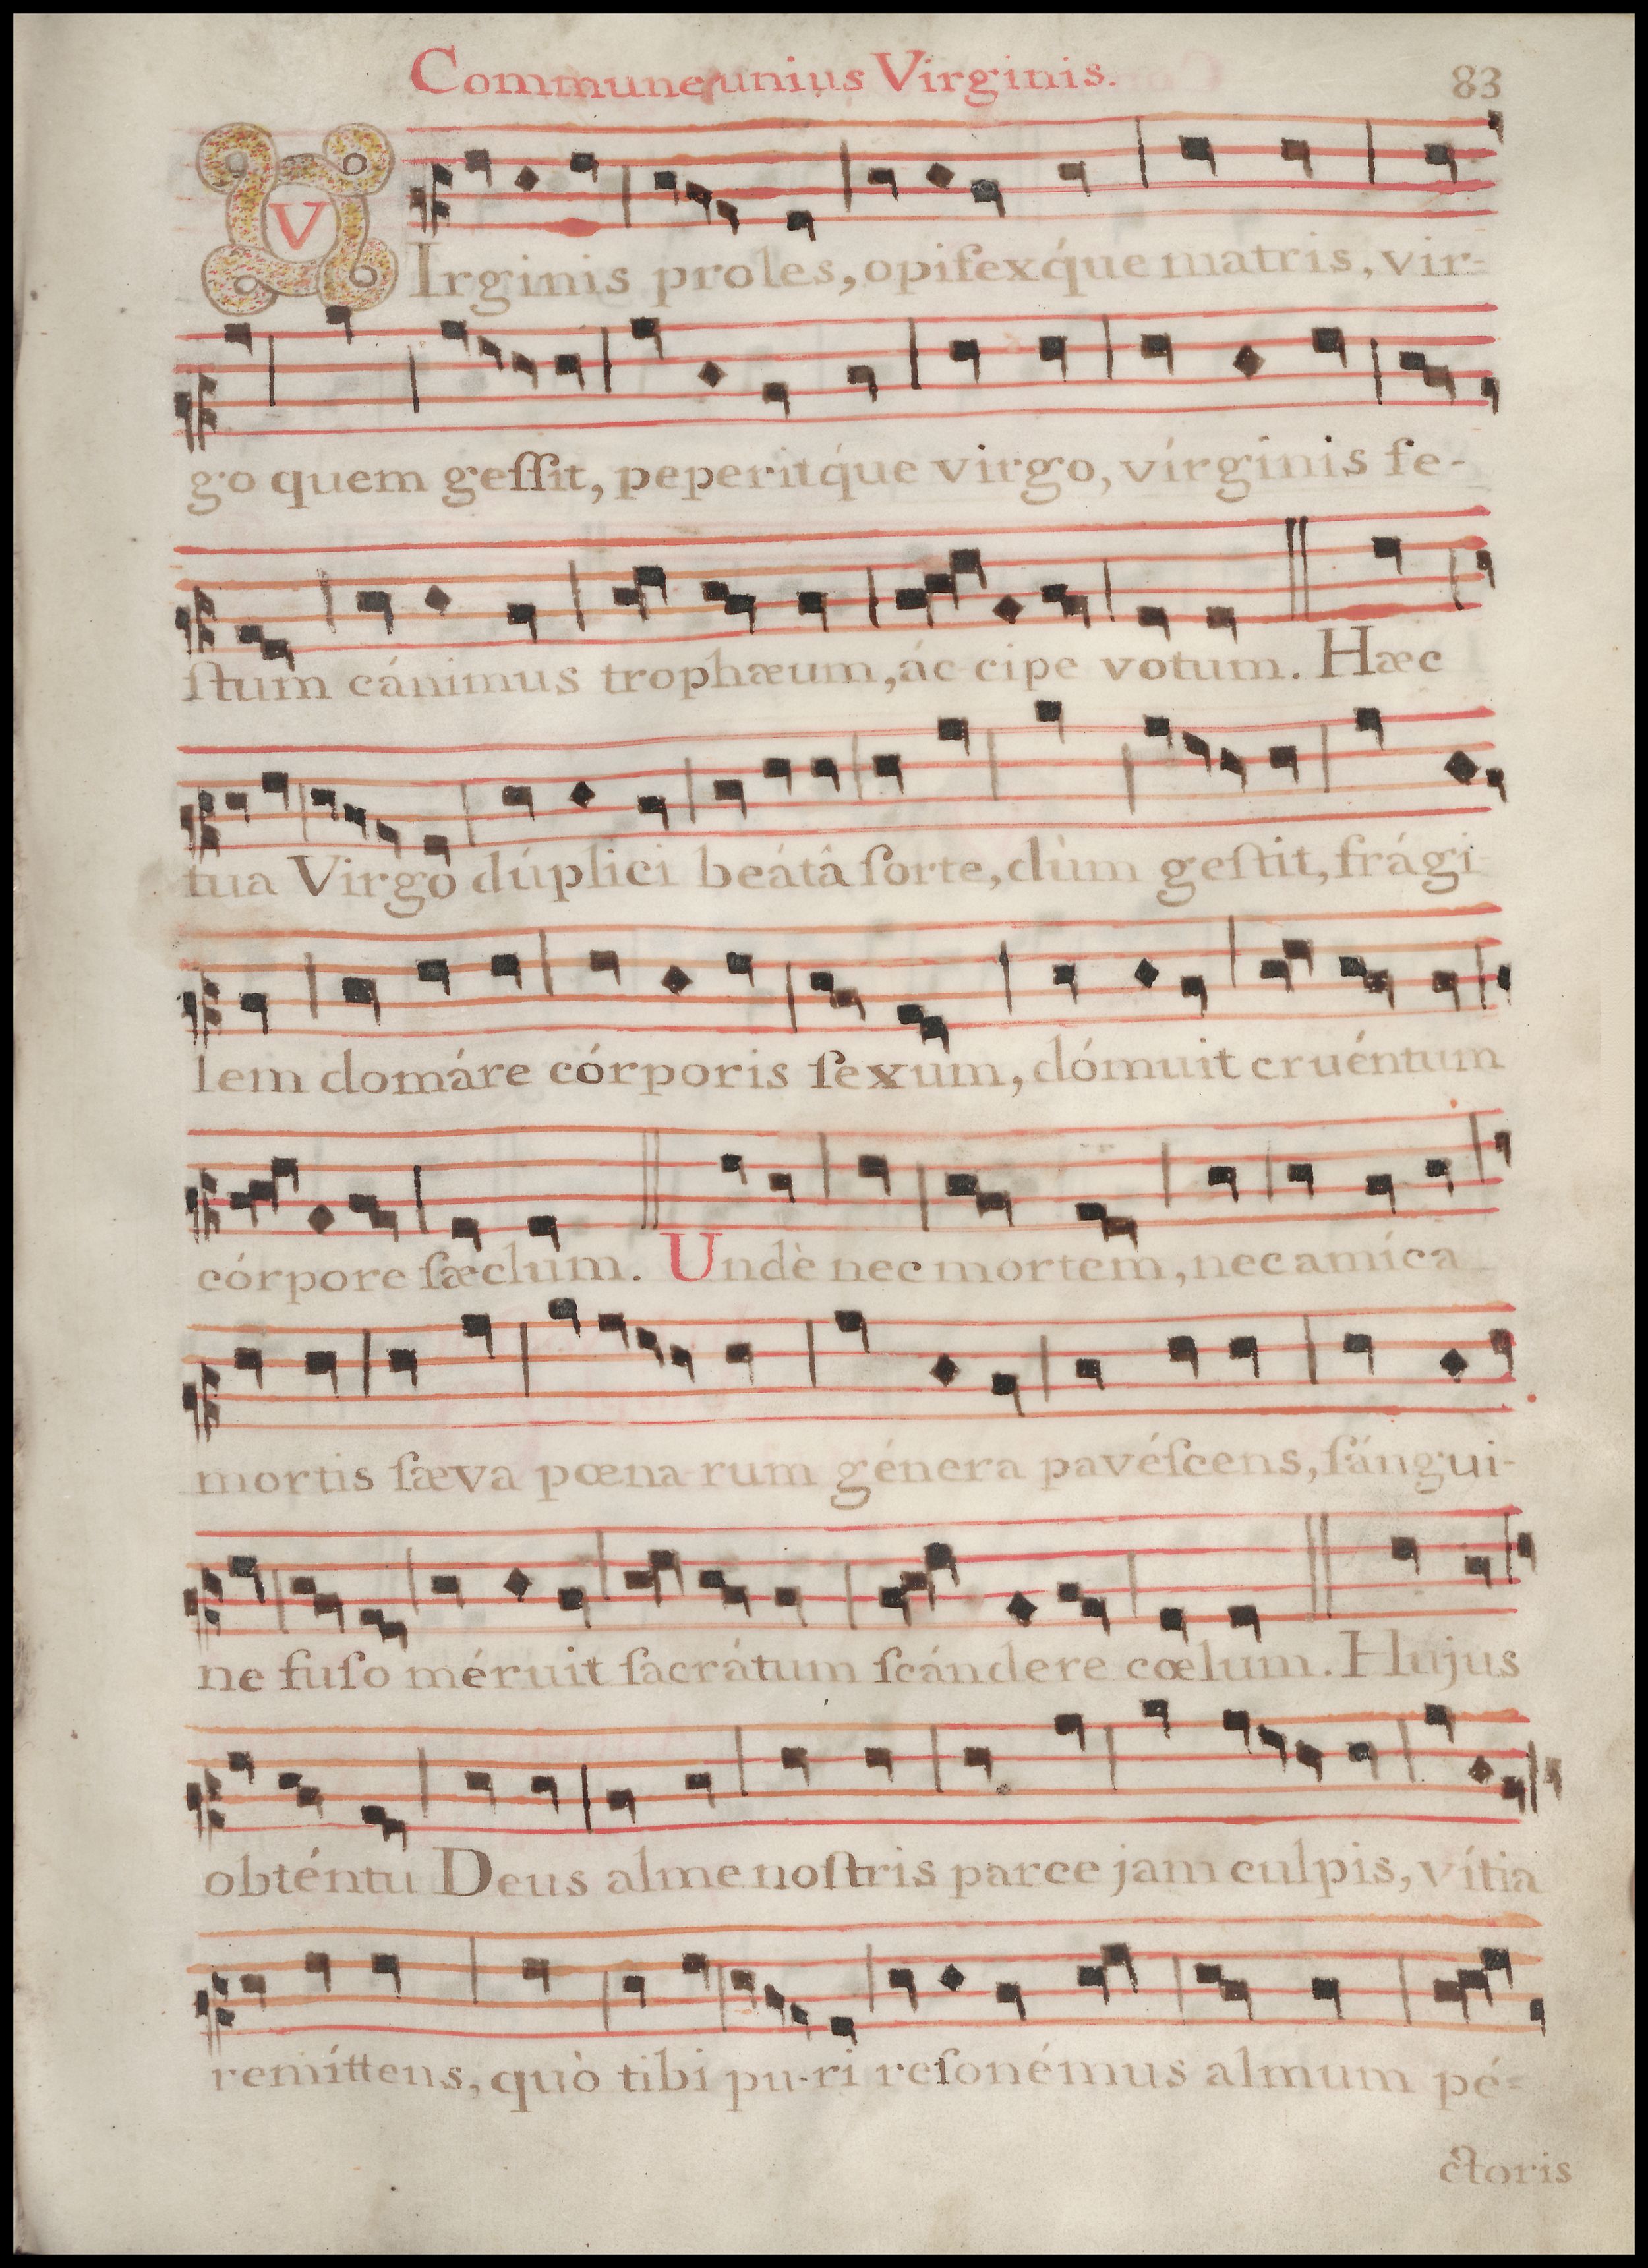 Commune unius Virginis. 83
VIrginis proles, opiſexq́ue matris, vir-
go quem geſſit, peperitq́ue virgo, vírginis fe-
ſtum cánimus trophæum, ác-cipe votum. Hæc
tua Virgo dúplici beátâ ſorte, dùm geſtit, frági-
lem domáre córporis ſexum, dómuit cruéntum
córpore ſæclum. Undè nec mortem, nec amíca
mortis ſæva pœna-rum génera pavéſcens, ſángui-
ne fuſo méruit ſacrátum ſcándere cœlum. Hujus
obténtu Deus alme noſtris parce jam culpis, vítia
remíttens, quò tibi pu-ri reſonémus almum pé-
ctoris